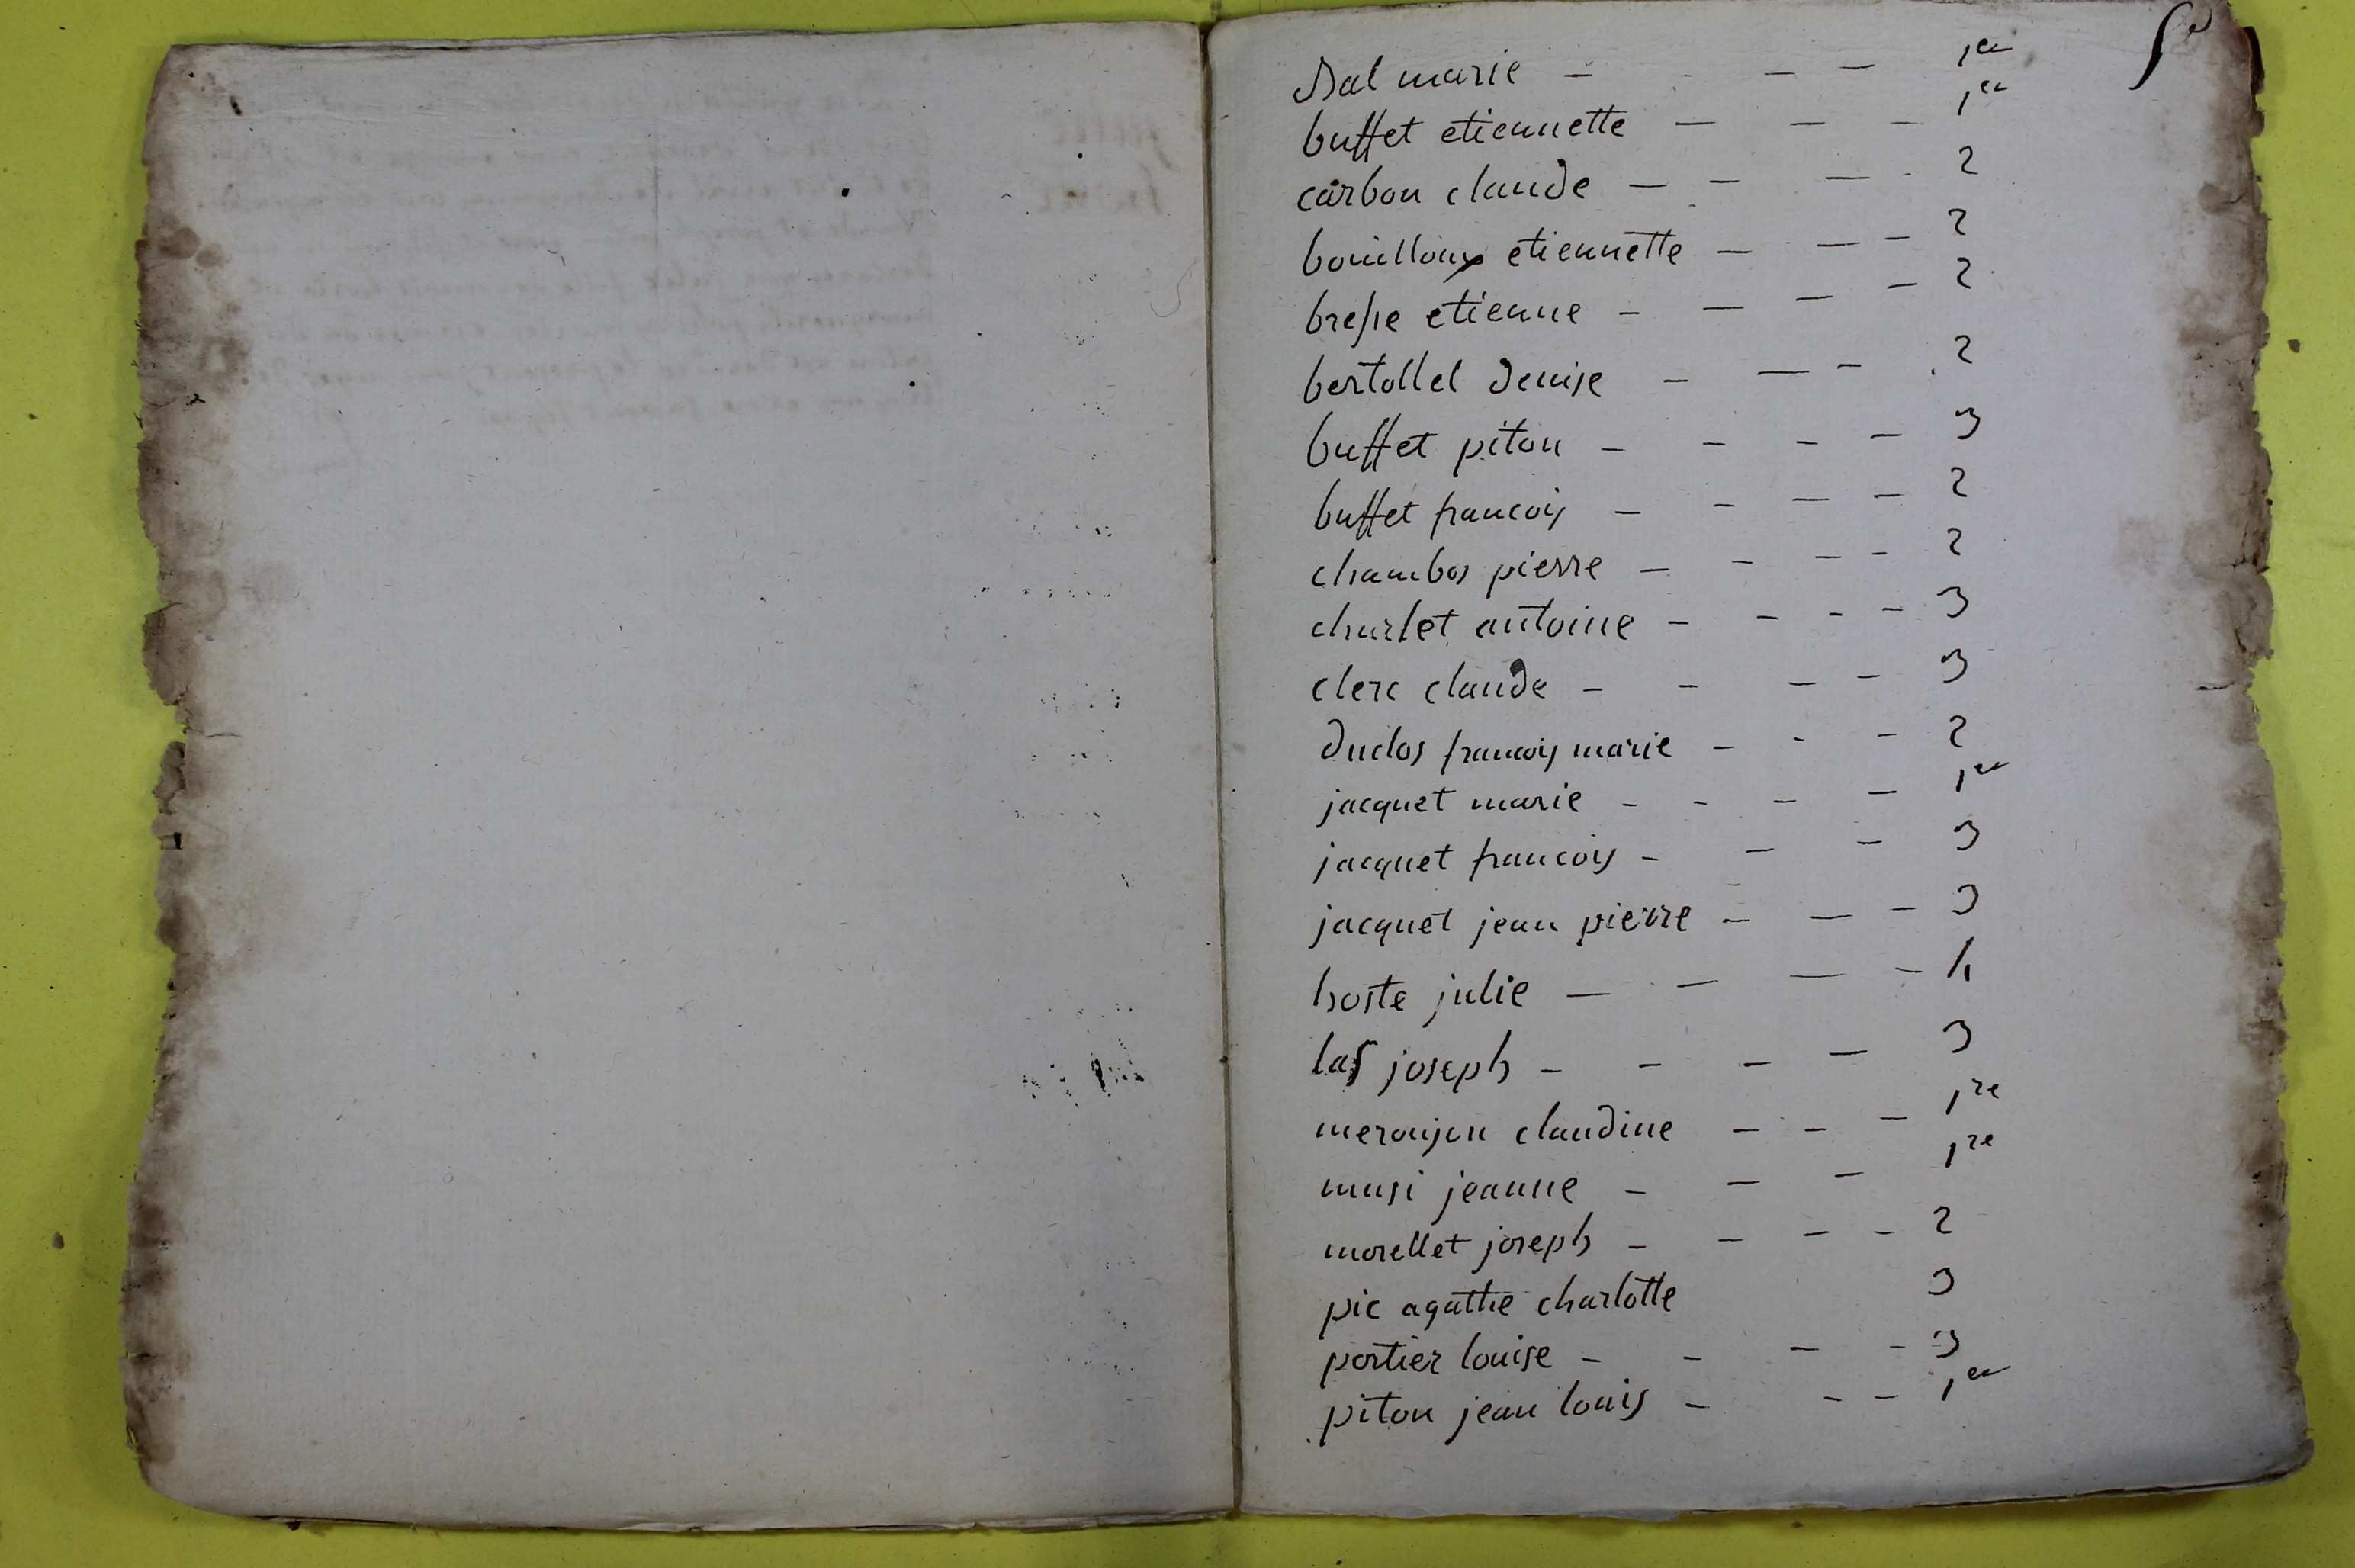 Bal marie — - — — 1er
buffet etiennette — — — 1er
carbon claude — — — - 2
bouilloux etiennette — — — 2
bresse etienne — — — — 2
bertollet denise — — — 2
buffet piton — — — — 3
buffet francois — — — — 2
chambos pierre — — — — 2
charlet antoine — — — — 3
clerc claude — — — — 3
duclos francois marie — — — 2
jacquet marie — — — — 1er
jacquet francois — — — 3
jacquet jean pierre — — — 3
hoste julie — — — — 4
las joseph — — — — 3
meronjon claudine — — — 1re
musi jeanne — — — 1re
morellet joseph — — — — 2
pic agathe charlotte 3
portier louise — — — — 3
piton jean louis — — — 1er